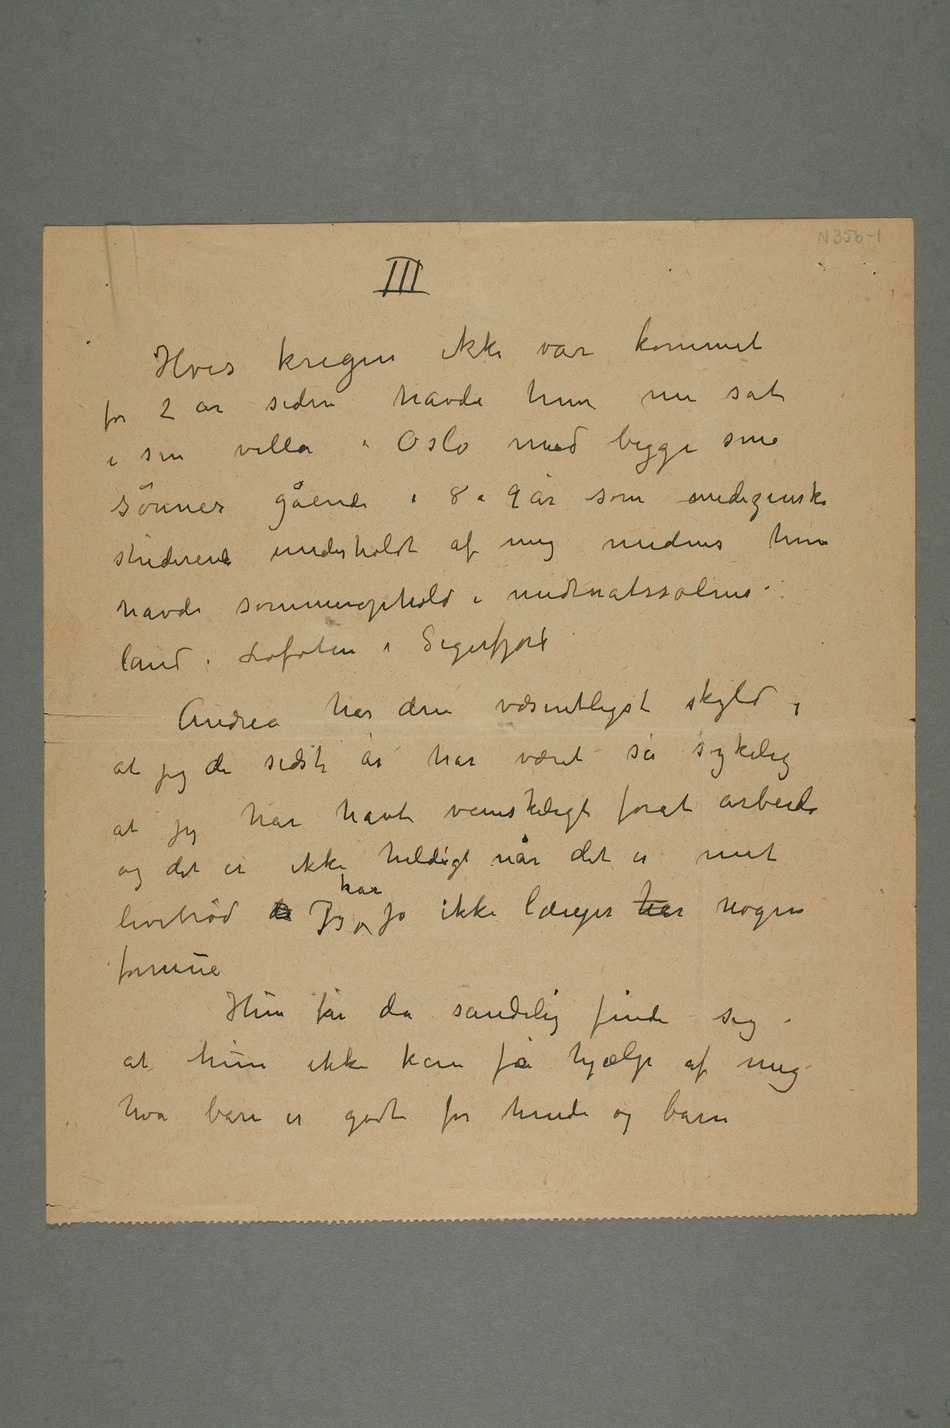 N 356-1
III
Hvis krigen ikke var kommet
for 2 år siden havde hun nu sat
i sin villa i Oslo med begge sine
sønner gående i 8 a 9 år som medizinske
studerende underholdt af mig medens hun
havde sommerophold i midtnatssolens
land i Lofoten i Sigerfjord
Andrea har den væsentligst skyld i
at jeg de sidste år har været så sykelig
at jeg har havt vanskeligt forat arbeide
og det er ikke heldigt når det er mit
levebrød
har
Jeg jo ikke længer har nogen
formue
Hun får da sandelig finde sig i
at hun ikke kan få hjælp af mig
hva bare er godt for hende og barn